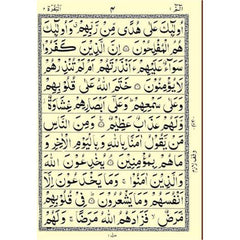 الٓمّٓ ١
٣
البقرة ٢
اُولٰٓئِكَ عَلٰى هُدًى مِّنْ رَّبِّهِمْ ۗ وَاُولٰٓئِكَ
هُمُ الْمُفْلِحُوْنَ ۝ اِنَّ الَّذِيْنَ كَفَرُوْا
سَوَآءٌ عَلَيْهِمْ ءَاَنْذَرْتَهُمْ اَمْ لَمْ تُنْذِرْهُمْ
لَا يُؤْمِنُوْنَ ۝ خَتَمَ اللّٰهُ عَلٰى قُلُوْبِهِمْ
وَعَلٰى سَمْعِهِمْ ۗ وَعَلٰٓى اَبْصَارِهِمْ غِشَاوَةٌ
وَّلَهُمْ عَذَابٌ عَظِيْمٌ ۝ وَمِنَ النَّاسِ
مَنْ يَّقُوْلُ اٰمَنَّا بِاللّٰهِ وَبِالْيَوْمِ الْاٰخِرِ وَ
مَا هُمْ بِمُؤْمِنِيْنَ ۝ يُخٰدِعُوْنَ اللّٰهَ
وَالَّذِيْنَ اٰمَنُوْا ۚ وَمَا يَخْدَعُوْنَ اِلَّآ
اَنْفُسَهُمْ وَمَا يَشْعُرُوْنَ ۝ فِيْ قُلُوْبِهِمْ
مَّرَضٌ ۙ فَزَادَهُمُ اللّٰهُ مَرَضًا ۚ وَلَهُمْ